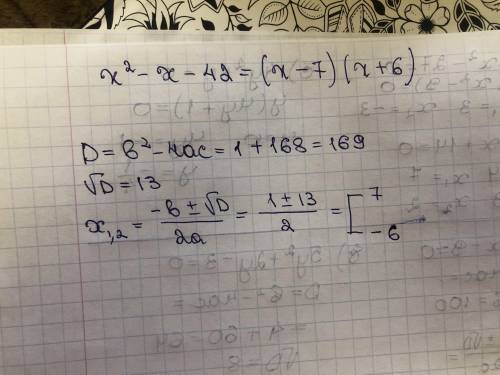 x² - x - 42 = (x - 7)(x + 6)
D = b² - 4ac = 1 + 168 = 169
√D = 13
x₁,₂ = (-b ± √D)/2a = (1 ± 13)/2 = [7
-6